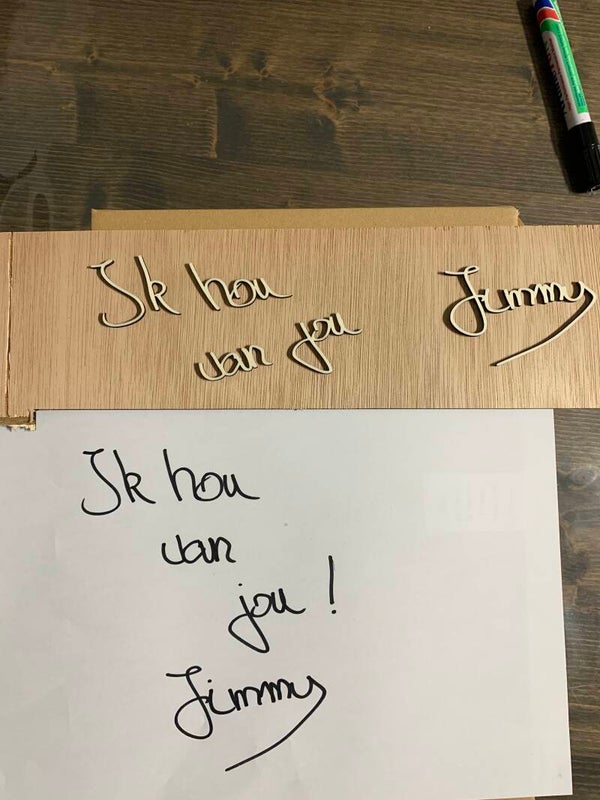 Ik hou
van jou
Jimmy
Ik hou
van
jou!
Jimmy